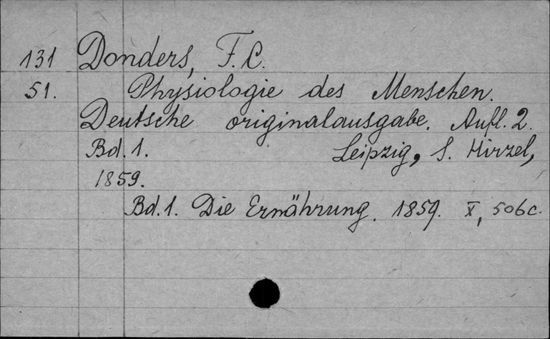 131 Donders, F.C.
51. Physiologie des Menschen.
Deutsche originalausgabe. Aufl. 2.
Bd. 1. Leipzig, S. Hirzel,
1859.
Bd. 1. Die Ernährung. 1859. X, 506 c.